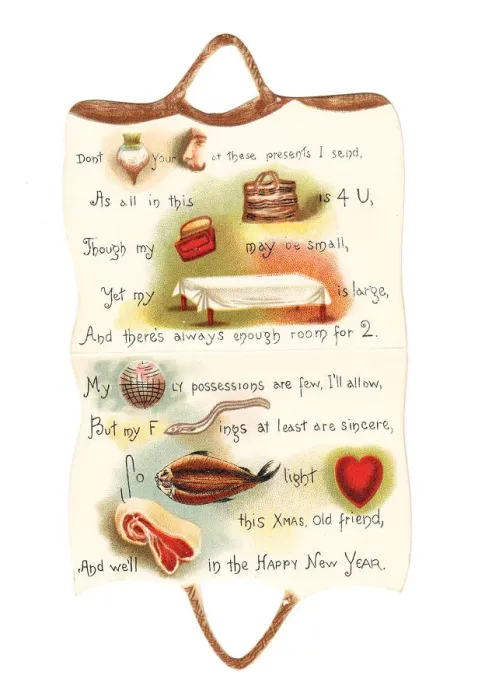 Dont your at these presents I send,
As all in this is 4 U,
Though my may be small,
Yet my is large,
And there's always enough room for 2.
My LY possessions are few, I'll allow,
But my F ings at least are sincere,
So light
this XMAS, old friend,
And we'll in the HAPPY NEW YEAR.